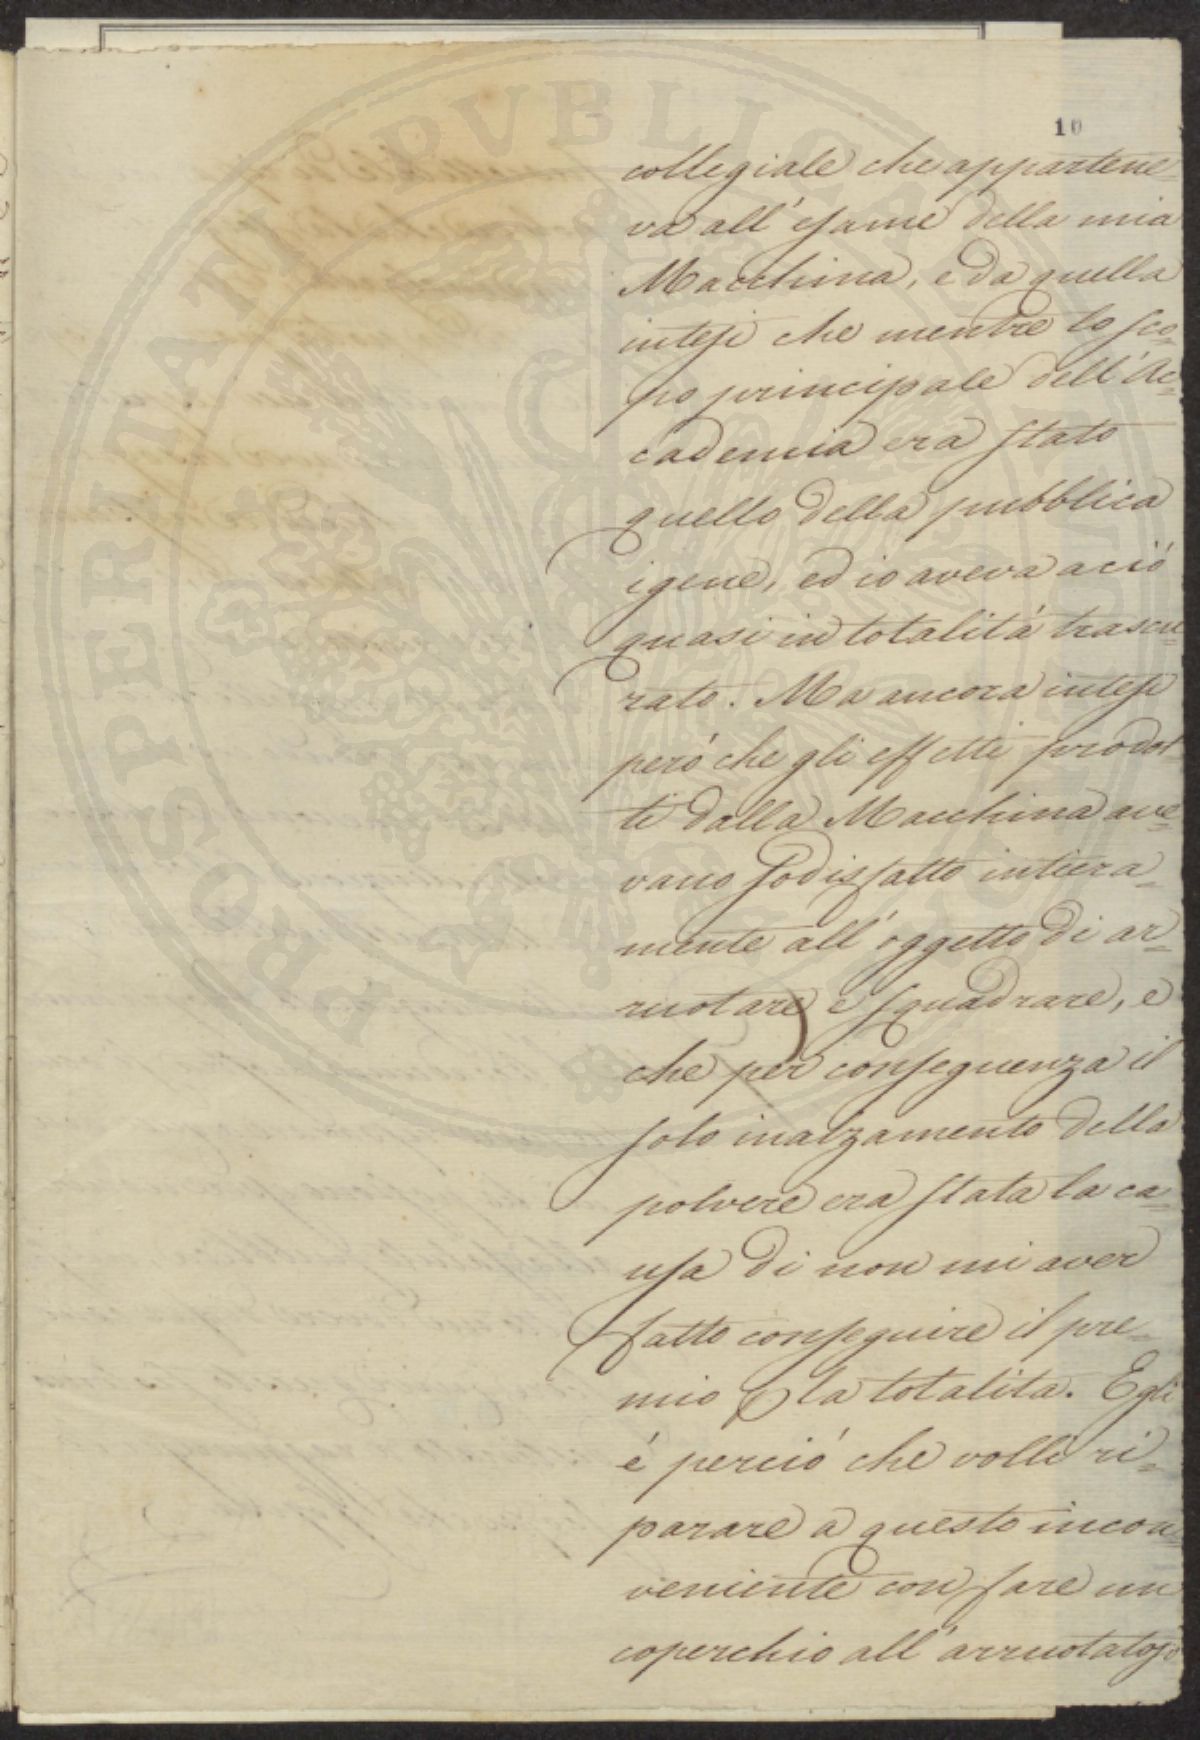 PROSPERITATI PUBLICAE
10
collegiale che appartene
va all' esame della mia
Macchina, e da quella
intesi che mentre lo sco=
po principale dell' Ac=
cademia era stato
quello della pubblica
igene, ed io aveva a ció
quasi in totalitá trascu=
rato. Ma ancora intesi
peró che gli effetti prodot
ti dalla Macchina ave=
vano sodisfatto intiera=
mente all' oggetto di ar=
ruotare e squadrare, e
che per conseguenza il
solo inalzamento della
polvere era stata la ca=
usa di non mi aver
fatto conseguire il pre=
mio p la totalita. Egli
é perció che volli ri=
parare a questo incon=
veniente con fare un
coperchio all' arruotatojo